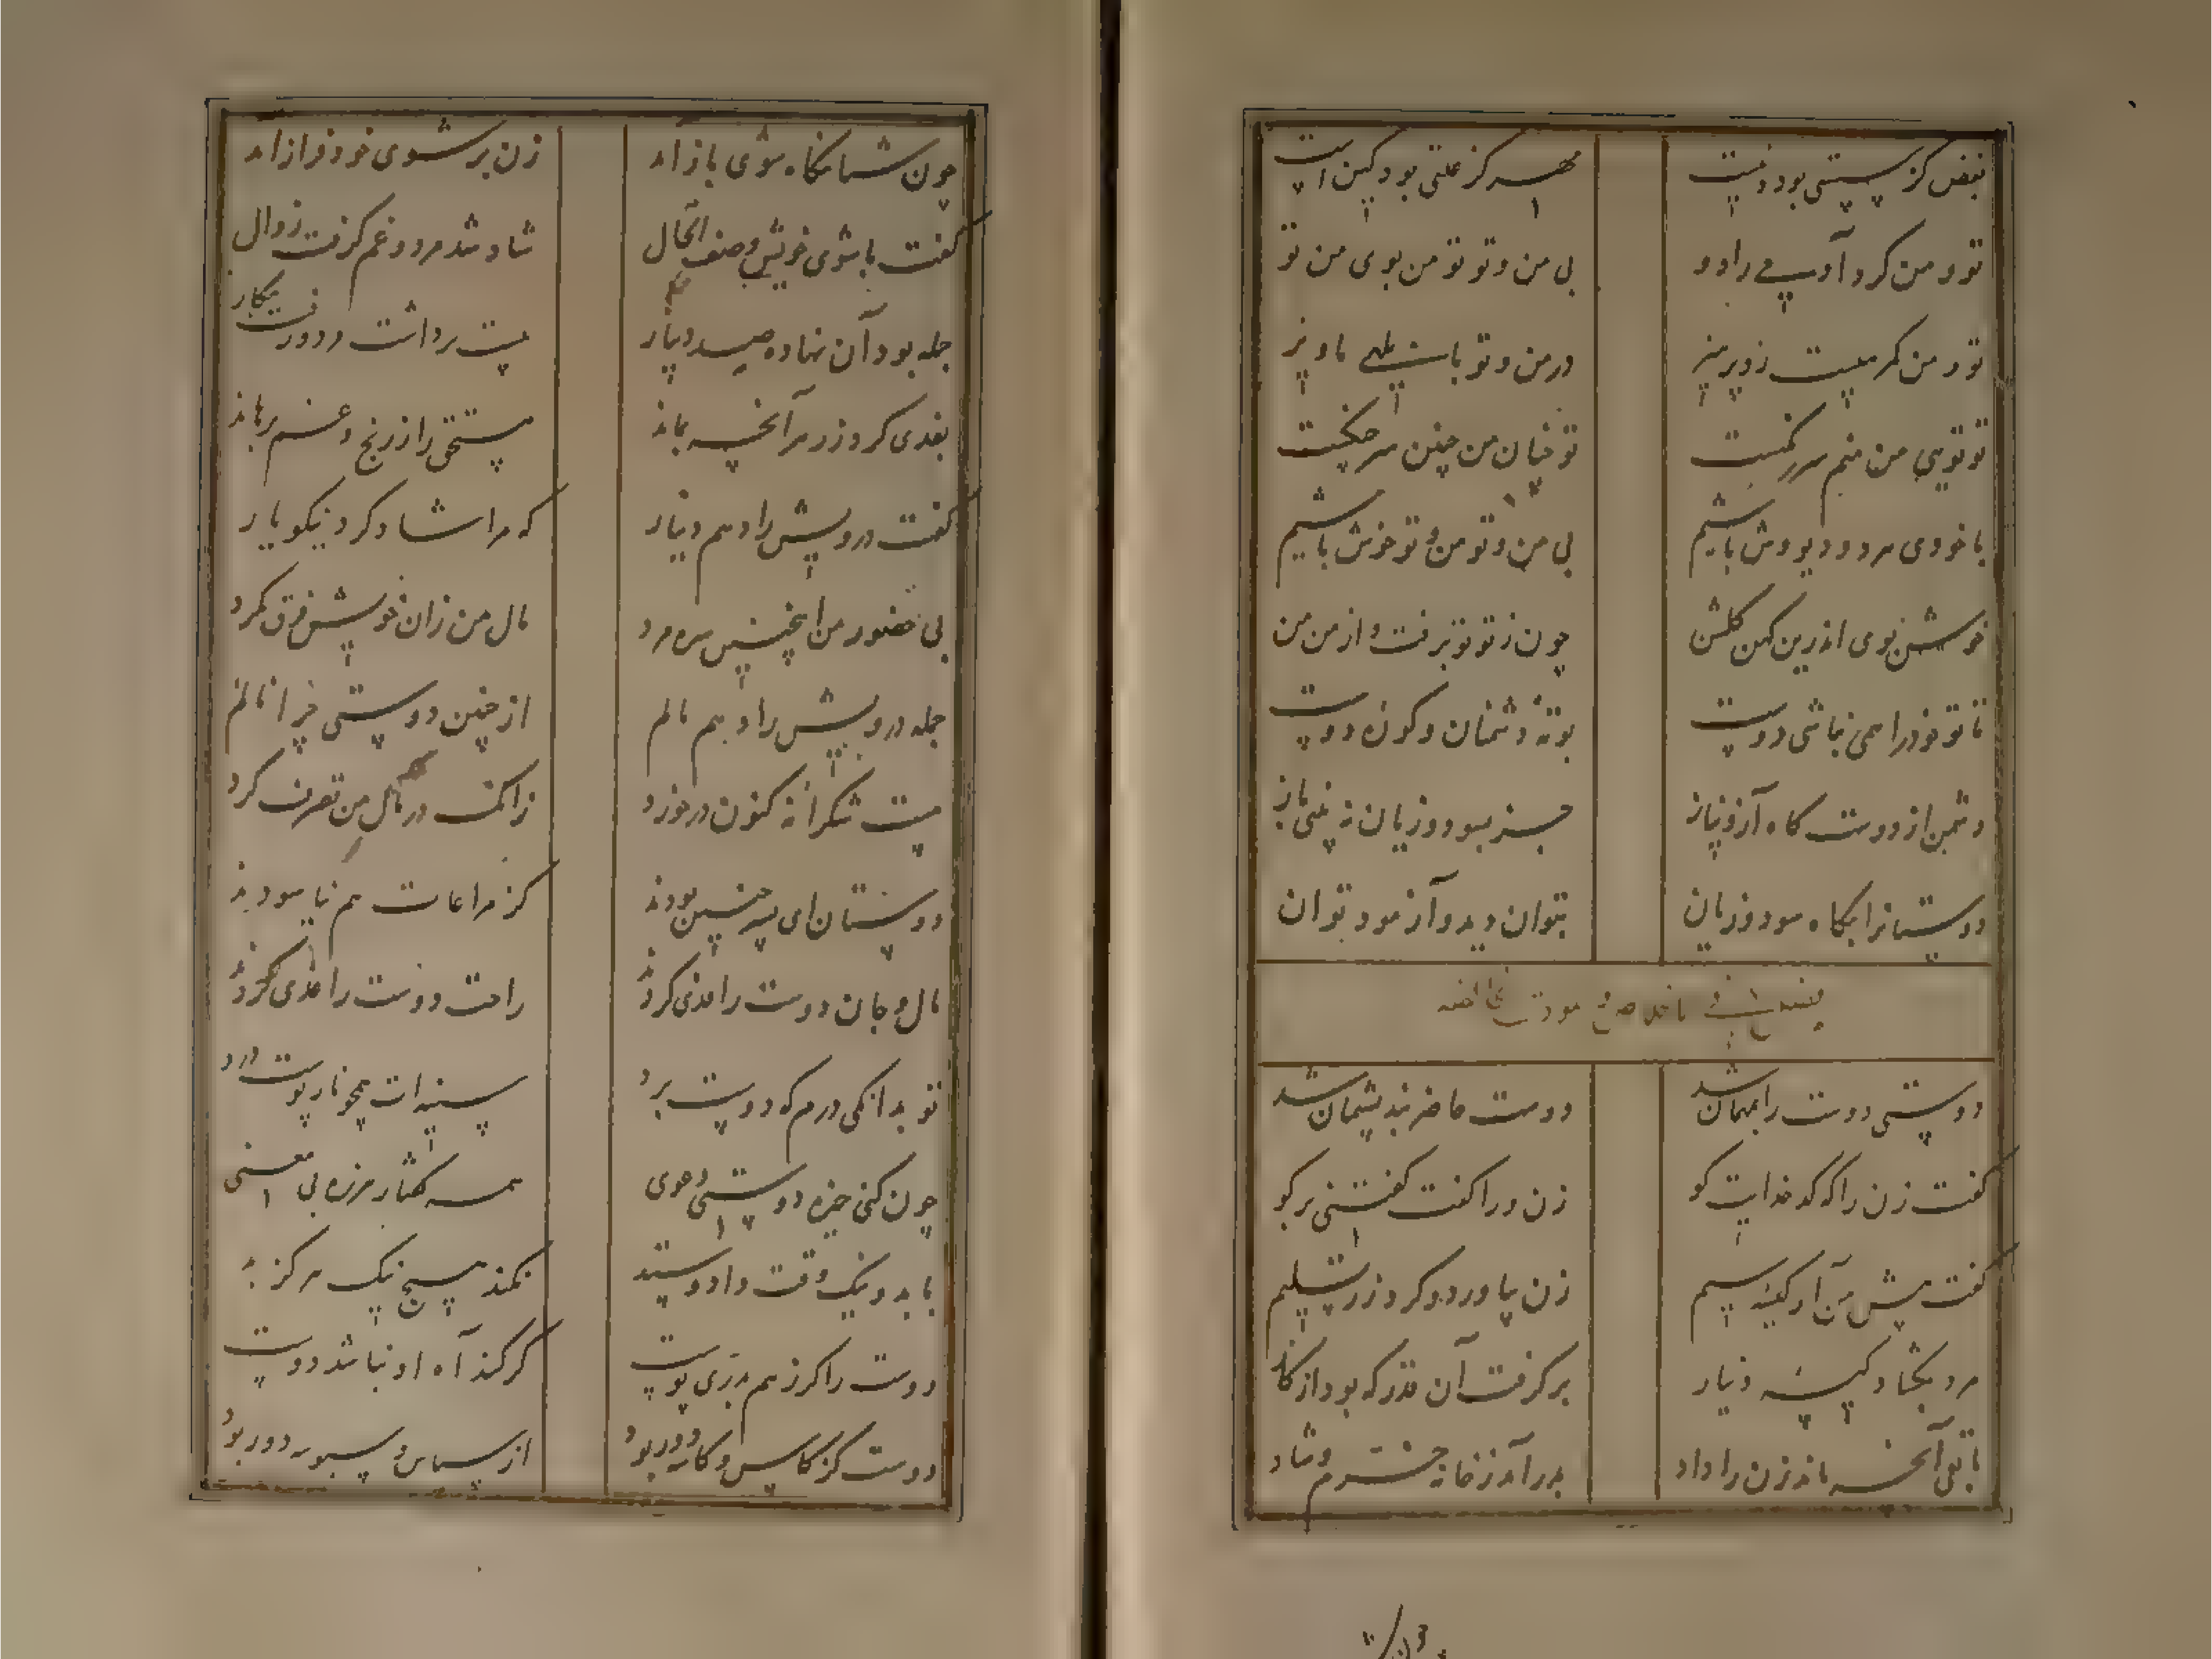 بغض کز سستی بود دینیست
مهر کز علتی بود کین است
تو و من کرد آدمی را دو
بی من و تو تو من بوی من تو
تو و من کرد نیست زو پرهیز
در من و تو
تو تویی من منم سر
تو چنان من چنین سر جنگیست
با خودی مرد و دیو وش باشیم
بی من و تو من و تو خوش باشیم
خوش بوی اندرین کهن گلشن
چون ز تو تو برفت و از من من
تا تو خود را همی نباشی دوست
بوتهٔ دشمنان و کوزه دوست
دشمن از دوست گاه آز و نیاز
جز بسود و زیان نه بینی باز
دوستانرا بگاه سود و زیان
بتوان دید و آزمود توان
دوستی دوست را بمهمان شد
دوست حاضر نبد پشیمان شد
گفت زن را که کدخدایت کو
زن ورا گفت گفتنی برگو
گفت پیش من آر کیسه سیم
زن بیاورد و کرد زر تسلیم
مرد بگشاد کیسه دینار
برگرفت آن قدر که بود از کار
باقی آنچه ماند زن را داد
بدر آمد ز خانه خرم و شاد
چون شبانگاه شوی باز آمد
زن بر شوی خود فراز آمد
گفت با شوی خویش وصف الحال
شاد شد مرد و غم گرفت زوال
جمله بود آن نهاده صد دینار
بیست برداشت مرد و رفت بکار
بعدی کرد زر هر آنچه بماند
مستحق را ز رنج و غم برهاند
گفت درویش را دهم دینار
که مرا شاد کرد نیکو یار
بی حضور من اینچنین سره مرد
مال من زان خویش فرق نکرد
جمله درویش را دهم مالم
از چنین دوستی چرا نالم
هست شکرانه کنون در خورد
زانک در مال من تصرف کرد
دوستان ای پسر چنین بودند
کز مراعات هم نیاسودند
مال و جان دوست را فدی کردند
راحت دوست را غذی کردند
تو بدانگی درم که دوست برد
سینه ات همچو نار پوست درد
چون کنی خیره دوستی دعوی
همه گفتار هرزه بی معنی
با بد و نیک وقت داد و ستد
نکند هیچ نیک هرگز بد
دوست را گر ز هم بدری پوست
گر کند آه او نباشد دوست
دوست کز کاس و کاسه دور بود
از سپاس و سبوسه دور بود